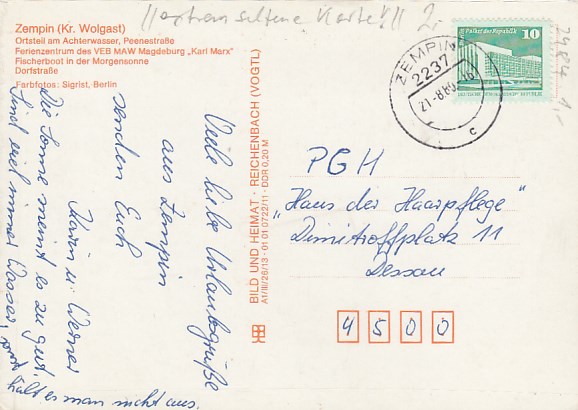 !!extrem seltene Karte!!! 2,-
Zempin (Kr. Wolgast)
Ortsteil am Achterwasser, Peenestraße
Ferienzentrum des VEB MAW Magdeburg „Karl Marx"
Fischerboot in der Morgensonne
Dorfstraße
Farbfotos: Sigrist, Berlin
Viele liebe Urlaubsgrüße
aus Zempin
senden Euch
Karin u. Werner
Die Sonne meint es zu gut.
Sind viel immer Wasser, sonst
hält es man nicht aus.
BILD UND HEIMAT · REICHENBACH (VOGTL)
A1/III/26/13 · 01 01 0722/11 · DDR 0,20 M
Palast der Republik
10
ZEMPIN
2237
21-8.80
c
PGH
„Haus der Haarpflege"
Dimitroffplatz 11
Dessau
4500